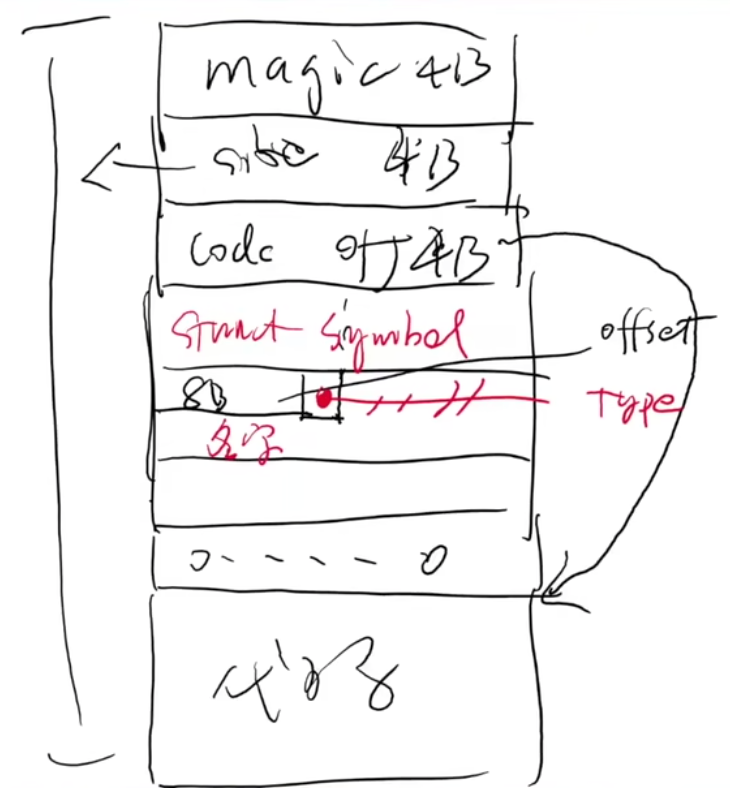 magic 4B
size 4B
code 4B
struct symbol
offset
8B
Type
名字
0 - - - - 0
代码